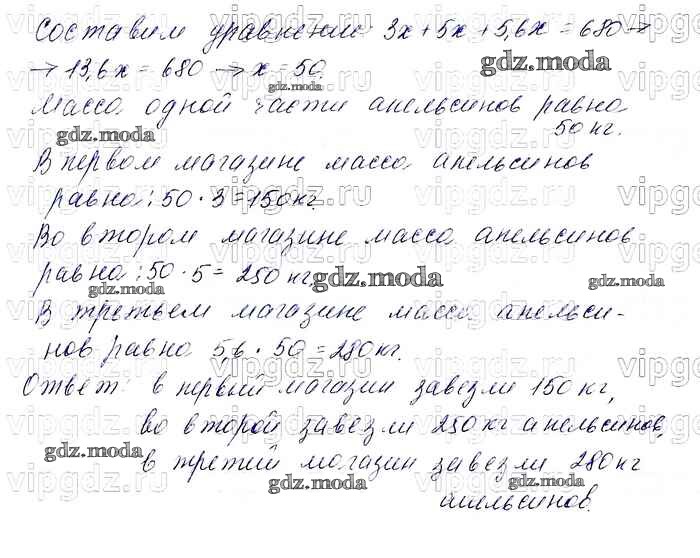 Составим уравнение 3х + 5х + 5,6х = 680 →
→ 13,6х = 680 → х = 50.
Масса одной части апельсинов равна
50 кг.
В первом магазине масса апельсинов
равна: 50 · 3 = 150 кг.
Во втором магазине масса апельсинов
равна: 50 · 5 = 250 кг
В третьем магазине масса апельси-
нов равна 5,6 · 50 = 280 кг.
Ответ: в первый магазин завезли 150 кг,
во второй завезли 250 кг апельсинов,
в третий магазин завезли 280 кг
апельсинов.
gdz.moda
vipgdz.ru